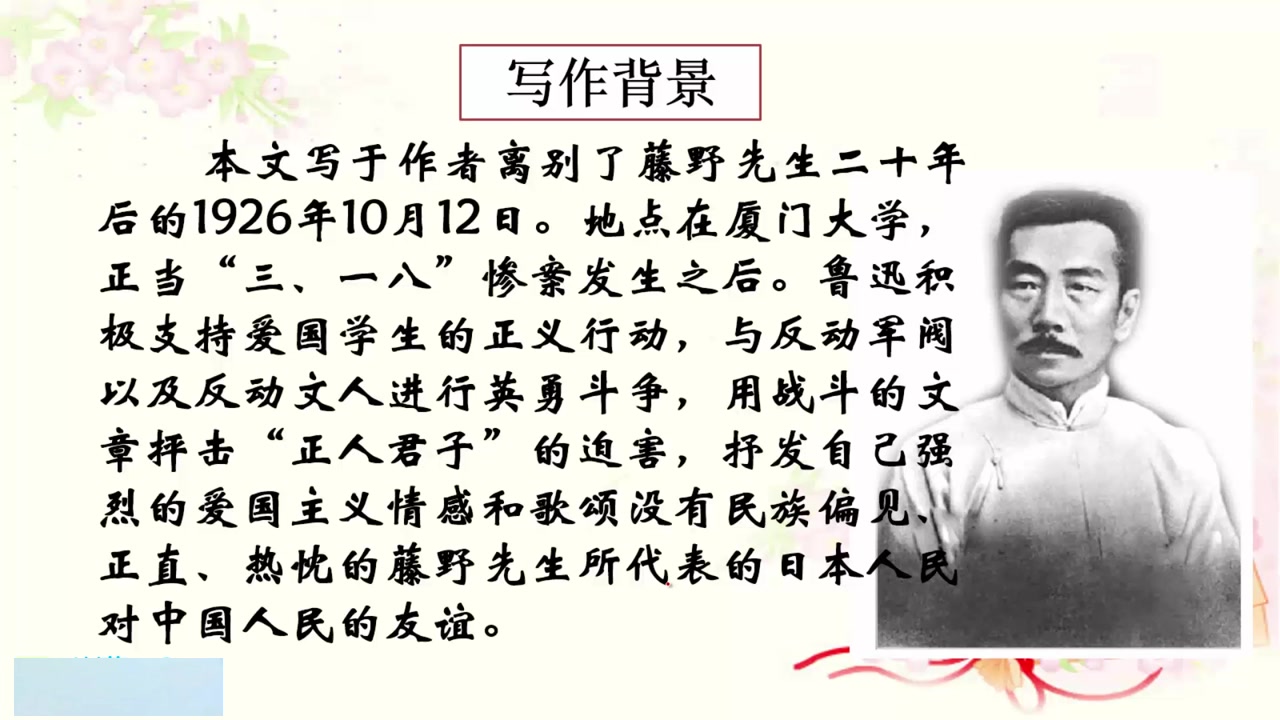 写作背景
本文写于作者离别了藤野先生二十年
后的1926年10月12日。地点在厦门大学，
正当“三、一八”惨案发生之后。鲁迅积
极支持爱国学生的正义行动，与反动军阀
以及反动文人进行英勇斗争，用战斗的文
章抨击“正人君子”的迫害，抒发自己强
烈的爱国主义情感和歌颂没有民族偏见、
正直、热忱的藤野先生所代表的日本人民
对中国人民的友谊。